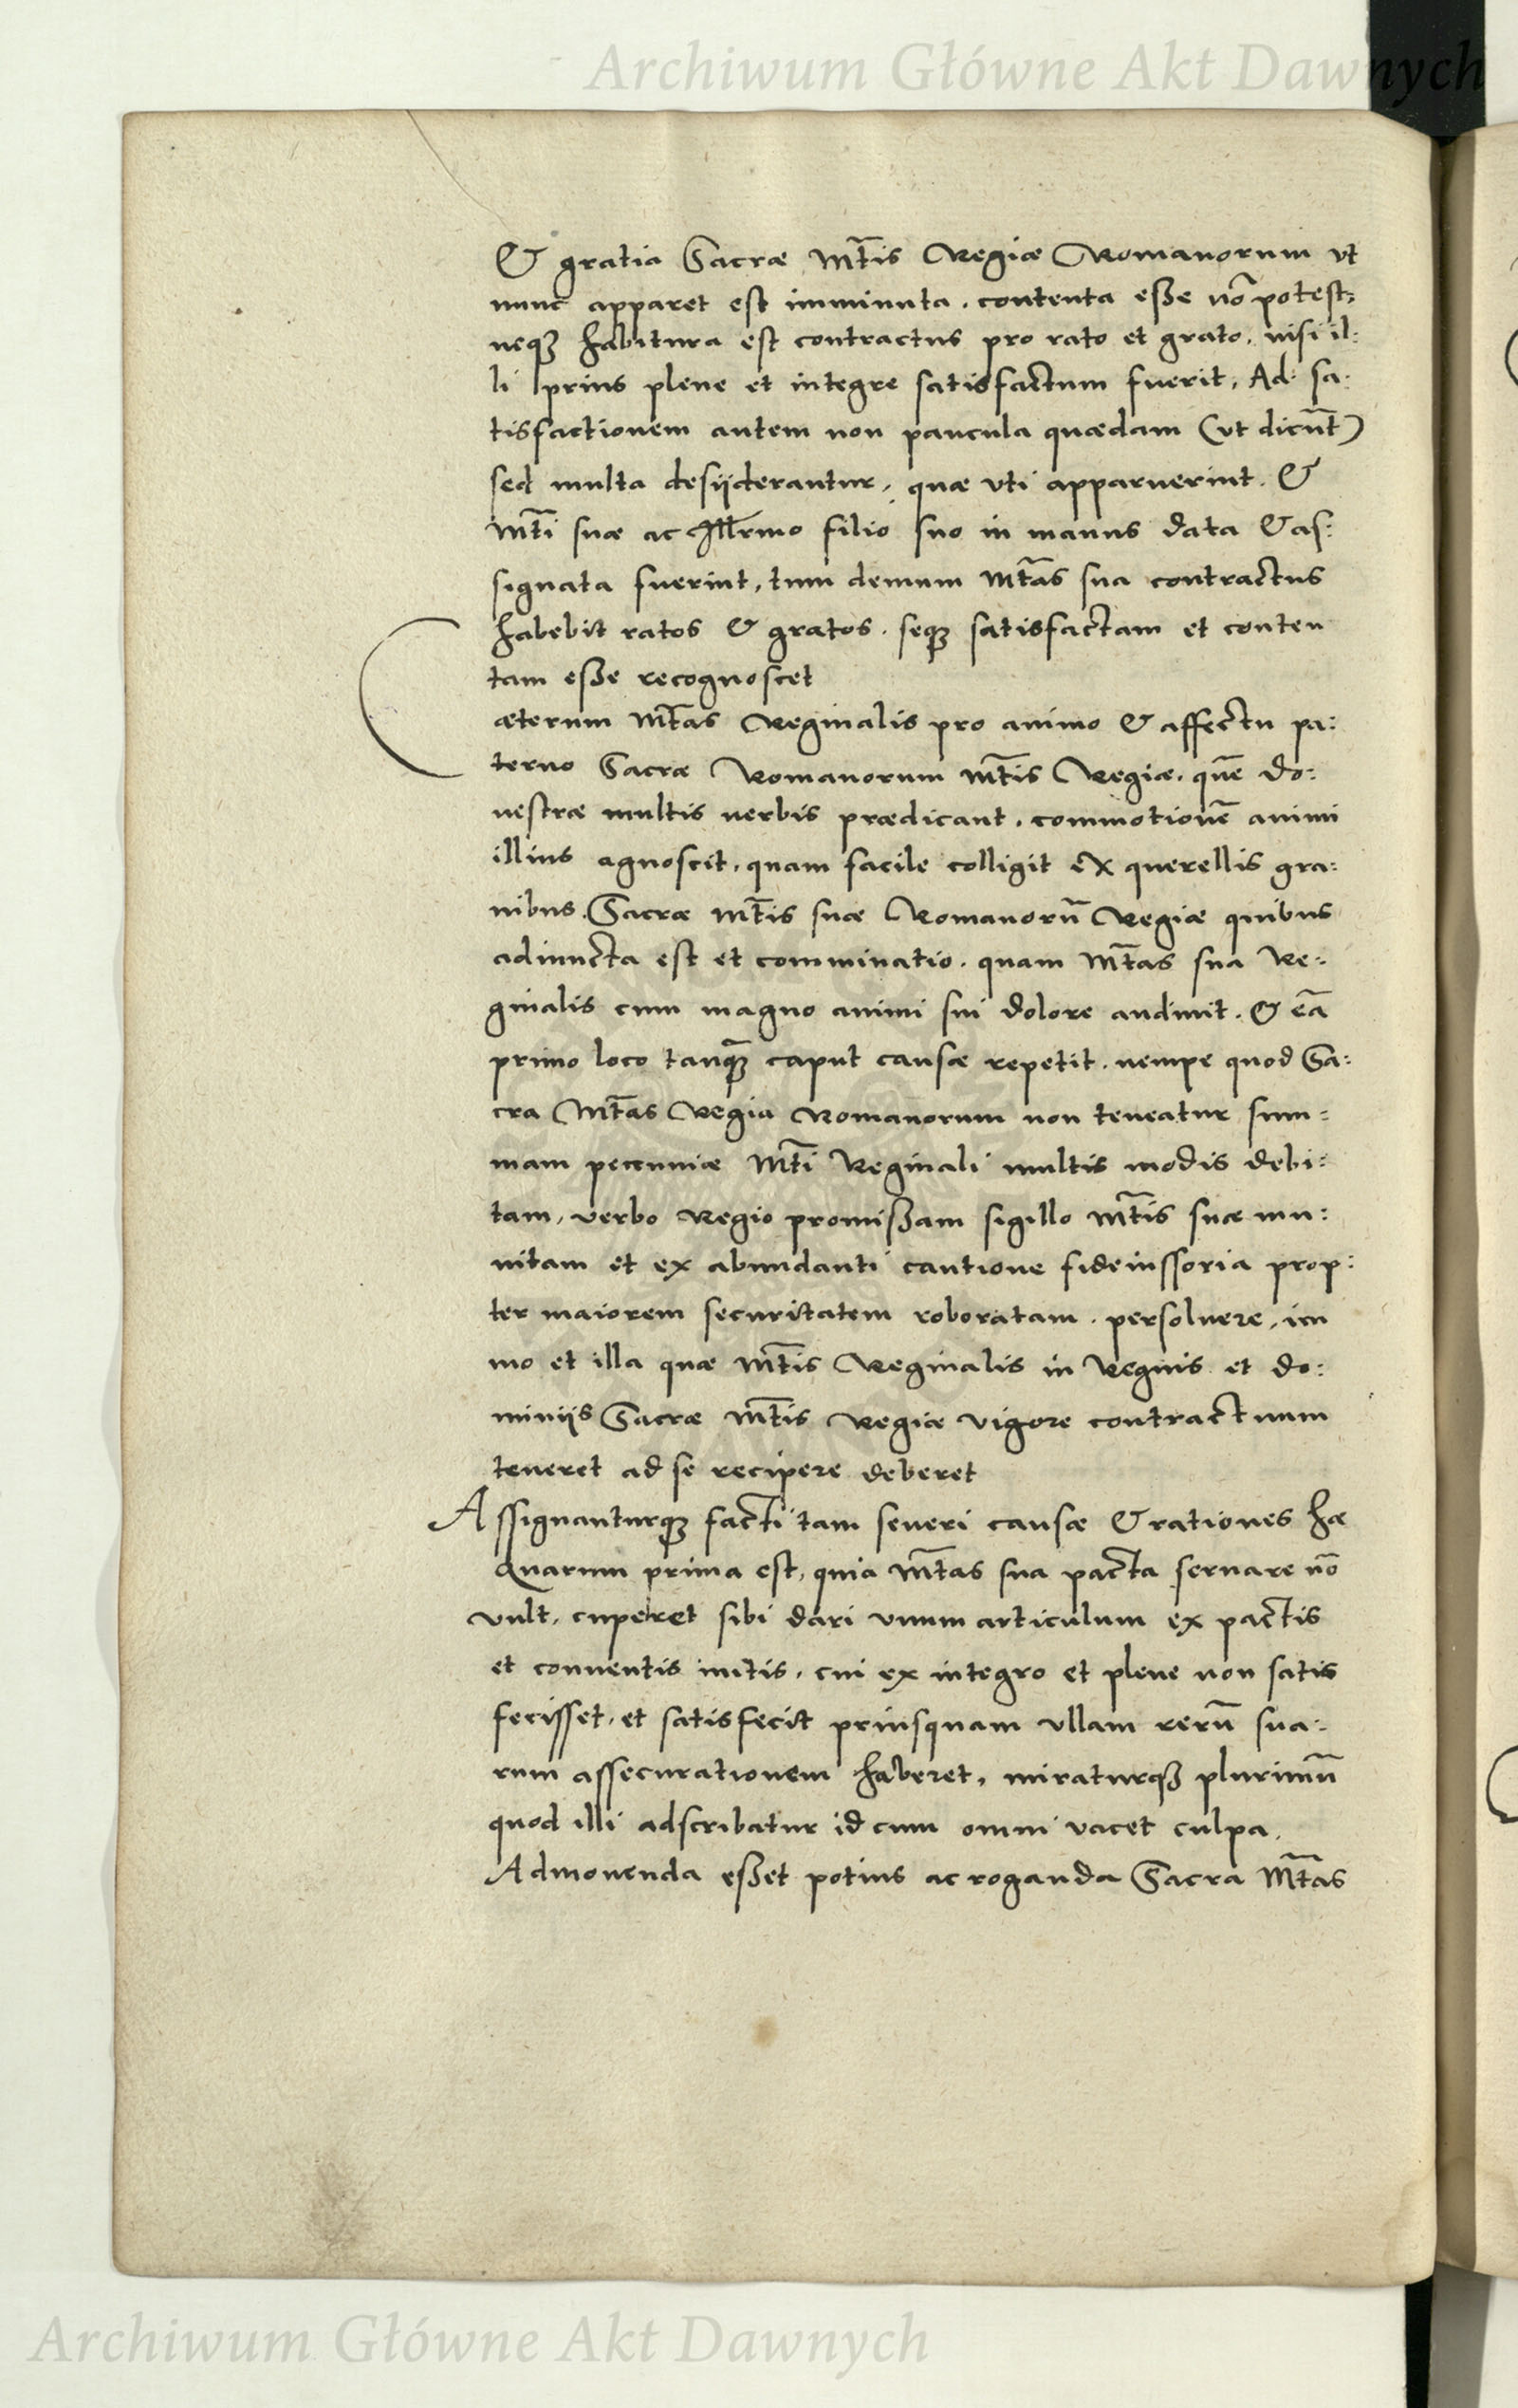 Archiwum Główne Akt Dawnych
& gratia Sacræ Mt̃is Regiæ Romanorum vt
nunc apparet est imminuta. contenta eße nõ potest:
neqꝫ habitura est contractus pro rato et grato, nisi il:
li prius plene et integre satisfactum fuerit, Ad sa:
tisfactionem autem non paucula quædam (vt dicũt)
sed multa desijderantur, quæ vti apparuerint. &
Mt̃i suæ ac Illr̃mo filio suo in manus data & as:
signata fuerint, tum demum Mt̃as sua contractus
habebit ratos & gratos. seqꝫ satisfactam et conten
tam eße recognoscet
Cæterum Mt̃as Reginalis pro animo & affectu pa:
terno Sacræ Romanorum Mt̃is Regiæ. quẽ do:
vestræ multis verbis prædicant. commotionẽ animi
illius agnoscit, quam facile colligit ex querellis gra:
uibus Sacræ Mt̃is suæ Romanorũ Regiæ quibus
adiuncta est et comminatio. quam Mt̃as sua Re:
ginalis cum magno animi sui dolore audiuit. & eã
primo loco tanqꝫ̃ caput causæ repetit. nempe quod Sa:
cra Mt̃as Regia Romanorum non teneatur sum:
mam pecuniæ Mt̃i Reginali multis modis debi:
tam, verbo Regio promißam sigillo Mt̃is suæ mu:
nitam et ex abundanti cautione fideiussoria prop:
ter maiorem securitatem roboratam. persoluere, im
mo et illa quæ Mt̃is Reginalis in Regnis et do:
minijs Sacræ Mt̃is Regiæ vigore contractuum
teneret ad se recipere deberet
Assignanturqꝫ facti tam seueri causæ & rationes hæ
Quarum prima est, quia Mt̃as sua pacta seruare nõ
vult, cuperet sibi dari vnum articulum ex pactis
et conuentis initis, cui ex integro et plene non satis
fecisset, et satisfecit priusquam vllam rerũ sua:
rum assecurationem haberet, miraturqꝫ plurimũ
quod illi adscribatur id cum omni vacet culpa.
Admonenda eßet potius ac roganda Sacra Mt̃as
Archiwum Główne Akt Dawnych